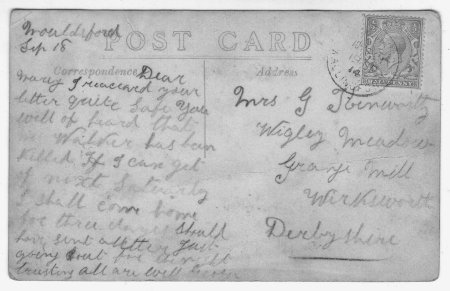 Wouldsford
Sep 18
POST CARD
Correspondence Dear
Address
Mary I reaccard your
letter quite safe you
will of heard that
W Walker has been
killed If I can get
of next Saturday
I shall come home
for three days should
have sent a letter Just
going out for
trusting all are well
Mrs G
Wigley Meadow
Grange Mill
Wirksworth
Derbyshire